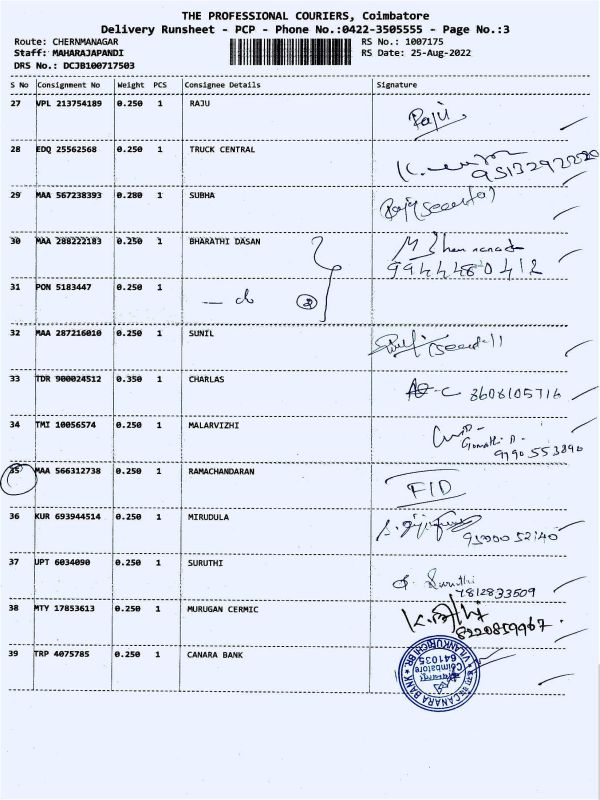 THE PROFESSIONAL COURIERS, Coimbatore
Delivery Runsheet - PCP - Phone No.:0422-3505555 - Page No.:3
Route: CHERNMANAGAR RS No.: 1007175
Staff: MAHARAJAPANDI RS Date: 25-Aug-2022
DRS No.: DCJB100717503
S No Consignment No Weight PCS Consignee Details Signature
27 VPL 213754189 0.250 1 RAJU Raju
28 EDQ 25562568 0.250 1 TRUCK CENTRAL
29 MAA 567238393 0.280 1 SUBHA
30 MAA 288222183 0.250 1 BHARATHI DASAN 9944480412
31 PON 5183447 0.250 1
32 MAA 287216010 0.250 1 SUNIL
33 TDR 900024512 0.350 1 CHARLAS 8608105716
34 TMI 10056574 0.250 1 MALARVIZHI
35 MAA 566312738 0.250 1 RAMACHANDARAN FID
36 KUR 693944514 0.250 1 MIRUDULA 95000 52140
37 UPT 6034090 0.250 1 SURUTHI 7812833509
38 MTY 17853613 0.250 1 MURUGAN CERMIC 8220859967
39 TRP 4075785 0.250 1 CANARA BANK
CANARA BANK
Coimbatore
641035